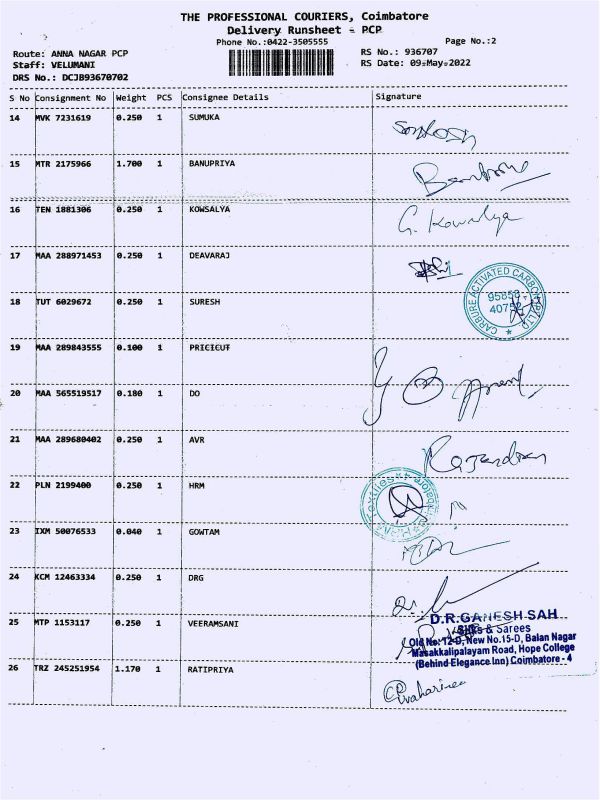 THE PROFESSIONAL COURIERS, Coimbatore
Delivery Runsheet - PCP
Phone No.:0422-3505555 Page No.:2
Route: ANNA NAGAR PCP RS No.: 936707
Staff: VELUMANI RS Date: 09-May-2022
DRS No.: DCJB93670702
S No Consignment No Weight PCS Consignee Details Signature
14 MVK 7231619 0.250 1 SUMUKA
15 MTR 2175966 1.700 1 BANUPRIYA
16 TEN 1881306 0.250 1 KOWSALYA G. Kowsalya
17 MAA 288971453 0.250 1 DEAVARAJ
CARBURE ACTIVATED CARBON
18 TUT 6029672 0.250 1 SURESH
19 MAA 289843555 0.100 1 PRICICUT
20 MAA 565519517 0.180 1 DO
21 MAA 289680402 0.250 1 AVR Rajendran
22 PLN 2199400 0.250 1 HRM
23 IXM 50076533 0.040 1 GOWTAM
24 KCM 12463334 0.250 1 DRG
D.R.GANESH SAH
25 MTP 1153117 0.250 1 VEERAMSANI Silks & Sarees
Old No: 12-D, New No.15-D, Balan Nagar
Masakkalipalayam Road, Hope College
(Behind Elegance Inn) Coimbatore - 4
26 TRZ 245251954 1.170 1 RATIPRIYA